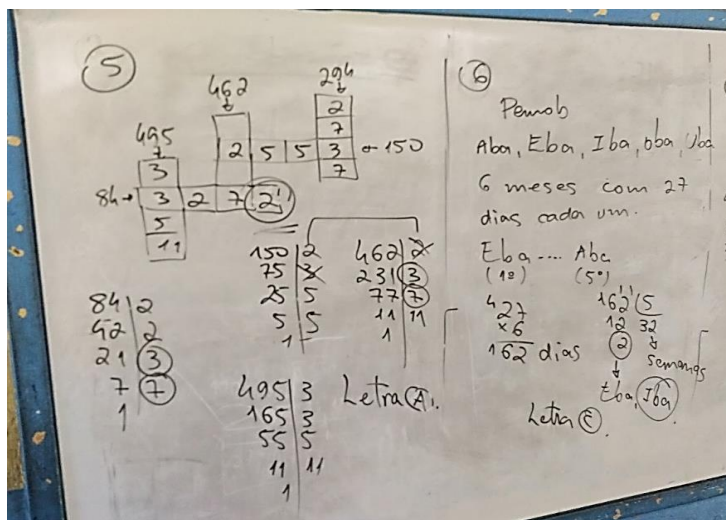 5
462
294
495
2
7
3
2 5 5 3 ← 150
7
84 → 3 2 7 2
5
11
150 | 2
75 | 3
25 | 5
5 | 5
1
462 | 2
231 | 3
77 | 7
11 | 11
1
84 | 2
42 | 2
21 | 3
7 | 7
1
495 | 3
165 | 3
55 | 5
11 | 11
1
Letra A.
6
Pemob
Aba, Eba, Iba, Oba, Uba
6 meses com 27
dias cada um.
Eba .... Aba
(1º) (5º)
27
x6
162 dias
162 | 5
12 32
2 semanas
Eba, Iba
Letra E.